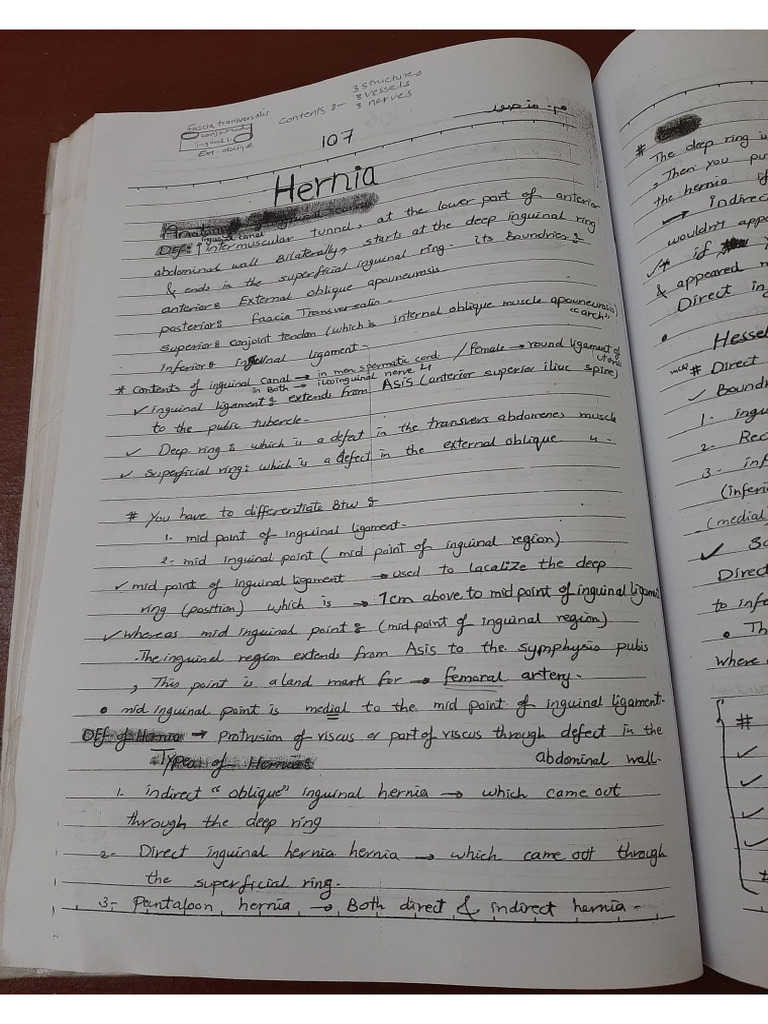 3 structures
3 vessels
3 nerves
Contents :-
Fascia transversalis
conjoint
inguinal
Ext. oblique
م. منصور
107
Hernia
Anatomy of inguinal canal
inguinal canal
Def: ↑ intermuscular tunnel, at the lower part of anterior
abdominal wall Bilaterally, starts at the deep inguinal ring
& ends in the superficial inguinal ring. its Boundries:
anterior: External oblique apouneurosis
posterior: Fascia Transversalin.
superior: conjoint tendon (which is internal oblique muscle apouneurosis)
"arch"
Inferior: inguinal ligament.
* contents of inguinal canal → in men spermatic cord / Female → round ligament of uterus
in Both → ilioinguinal nerve L1
✓ inguinal ligament: extends from ASIS (anterior superior iliac spine)
to the pubic tubercle.
✓ Deep ring: which is a defect in the transvers abdomenes muscle
✓ Superficial ring: which is a defect in the external oblique " .
# You have to differentiate Btw :
1. mid point of inguinal ligament.
2- mid inguinal point (mid point of inguinal region)
✓ mid point of inguinal ligament → used to lacalize the deep
ring (position) which is → 1cm above to mid point of inguinal ligament
✓ whereas mid inguinal point: (mid point of inguinal region)
.The inguinal region extends from Asis to the symphysis pubis
, This point is a land mark for → femoral artery.
• mid inguinal point is medial to the mid point of inguinal ligament.
DEf of Hernia → protrusion of viscus or part of viscus through defect in the
abdominal wall.
.Types of Hernia:
1. indirect "oblique" inguinal hernia → which came out
through the deep ring
2- Direct inguinal hernia hernia → which came out through
the superficial ring.
3- Pantaloon hernia → Both direct & indirect hernia -
# The deep ring
, Then you
the hernia
→ indirec
wouldn't appe
✓* if
& appeared
Direct in
•
Hessel
# Direct
✓ Bound
1. ingu
2- Rec
3- inf
(inferi
(medial)
✓
Direct
to infe
• Th
where
#
✓
✓
✓
✓